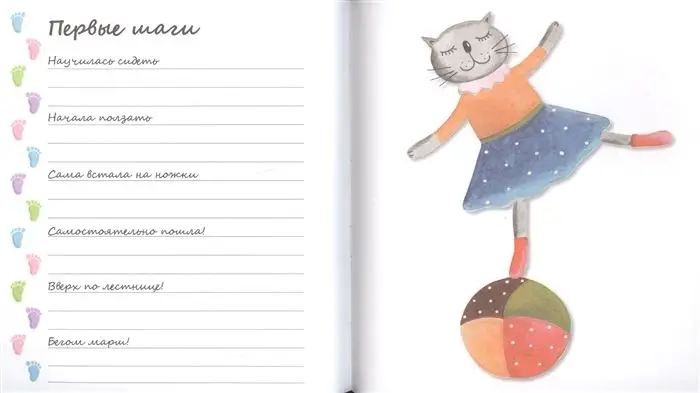 Первые шаги
Научилась сидеть
Начала ползать
Сама встала на ножки
Самостоятельно пошла!
Вверх по лестнице!
Бегом марш!